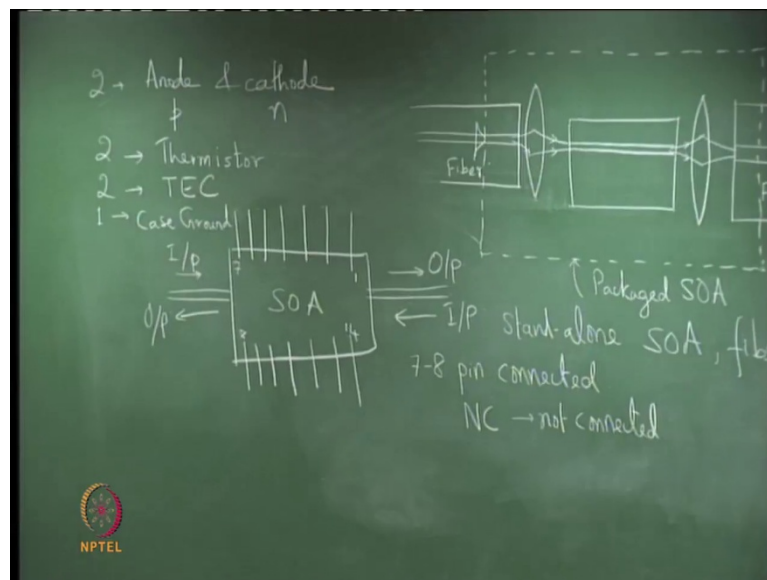 2 → Anode & cathode
p n
2 → Thermistor
2 → TEC
1 → Case Ground
7 1
I/p
O/p
SOA
O/p
I/p
8 14
Fiber
Packaged SOA
stand-alone SOA,
7-8 pin connected
NC → not connected
NPTEL